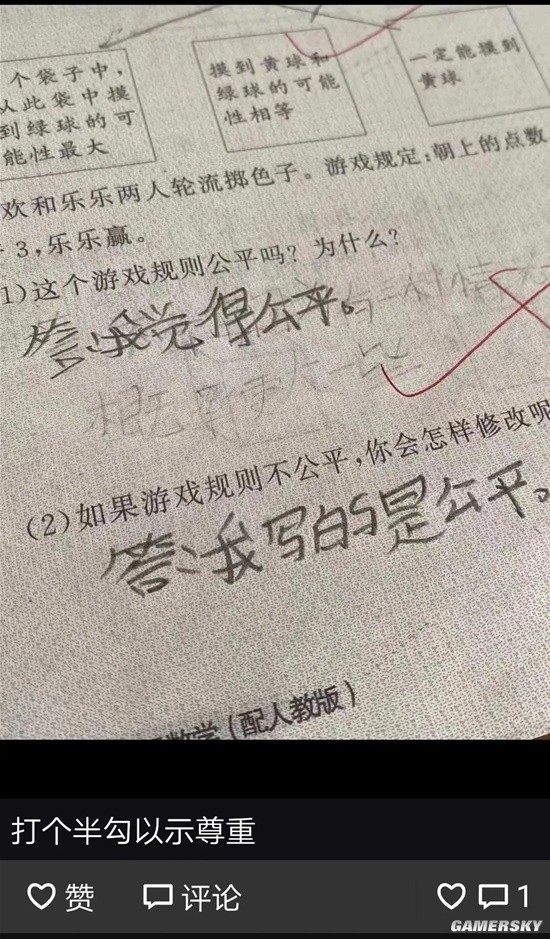 个袋子中，
从此袋中摸
到绿球的可
能性最大
摸到黄球和
绿球的可能
性相等
一定能摸到
黄球
欢和乐乐两人轮流掷色子。游戏规定：朝上的点数
3，乐乐赢。
1)这个游戏规则公平吗？为什么？
答：我觉得公平。
(2)如果游戏规则不公平，你会怎样修改呢
答：我写的是公平。
数学(配人教版)
打个半勾以示尊重
赞 评论 1
GAMERSKY